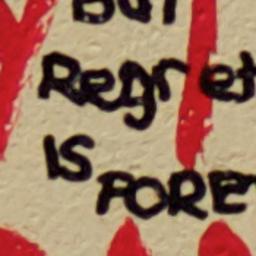 BUT
Regret
IS
FORE